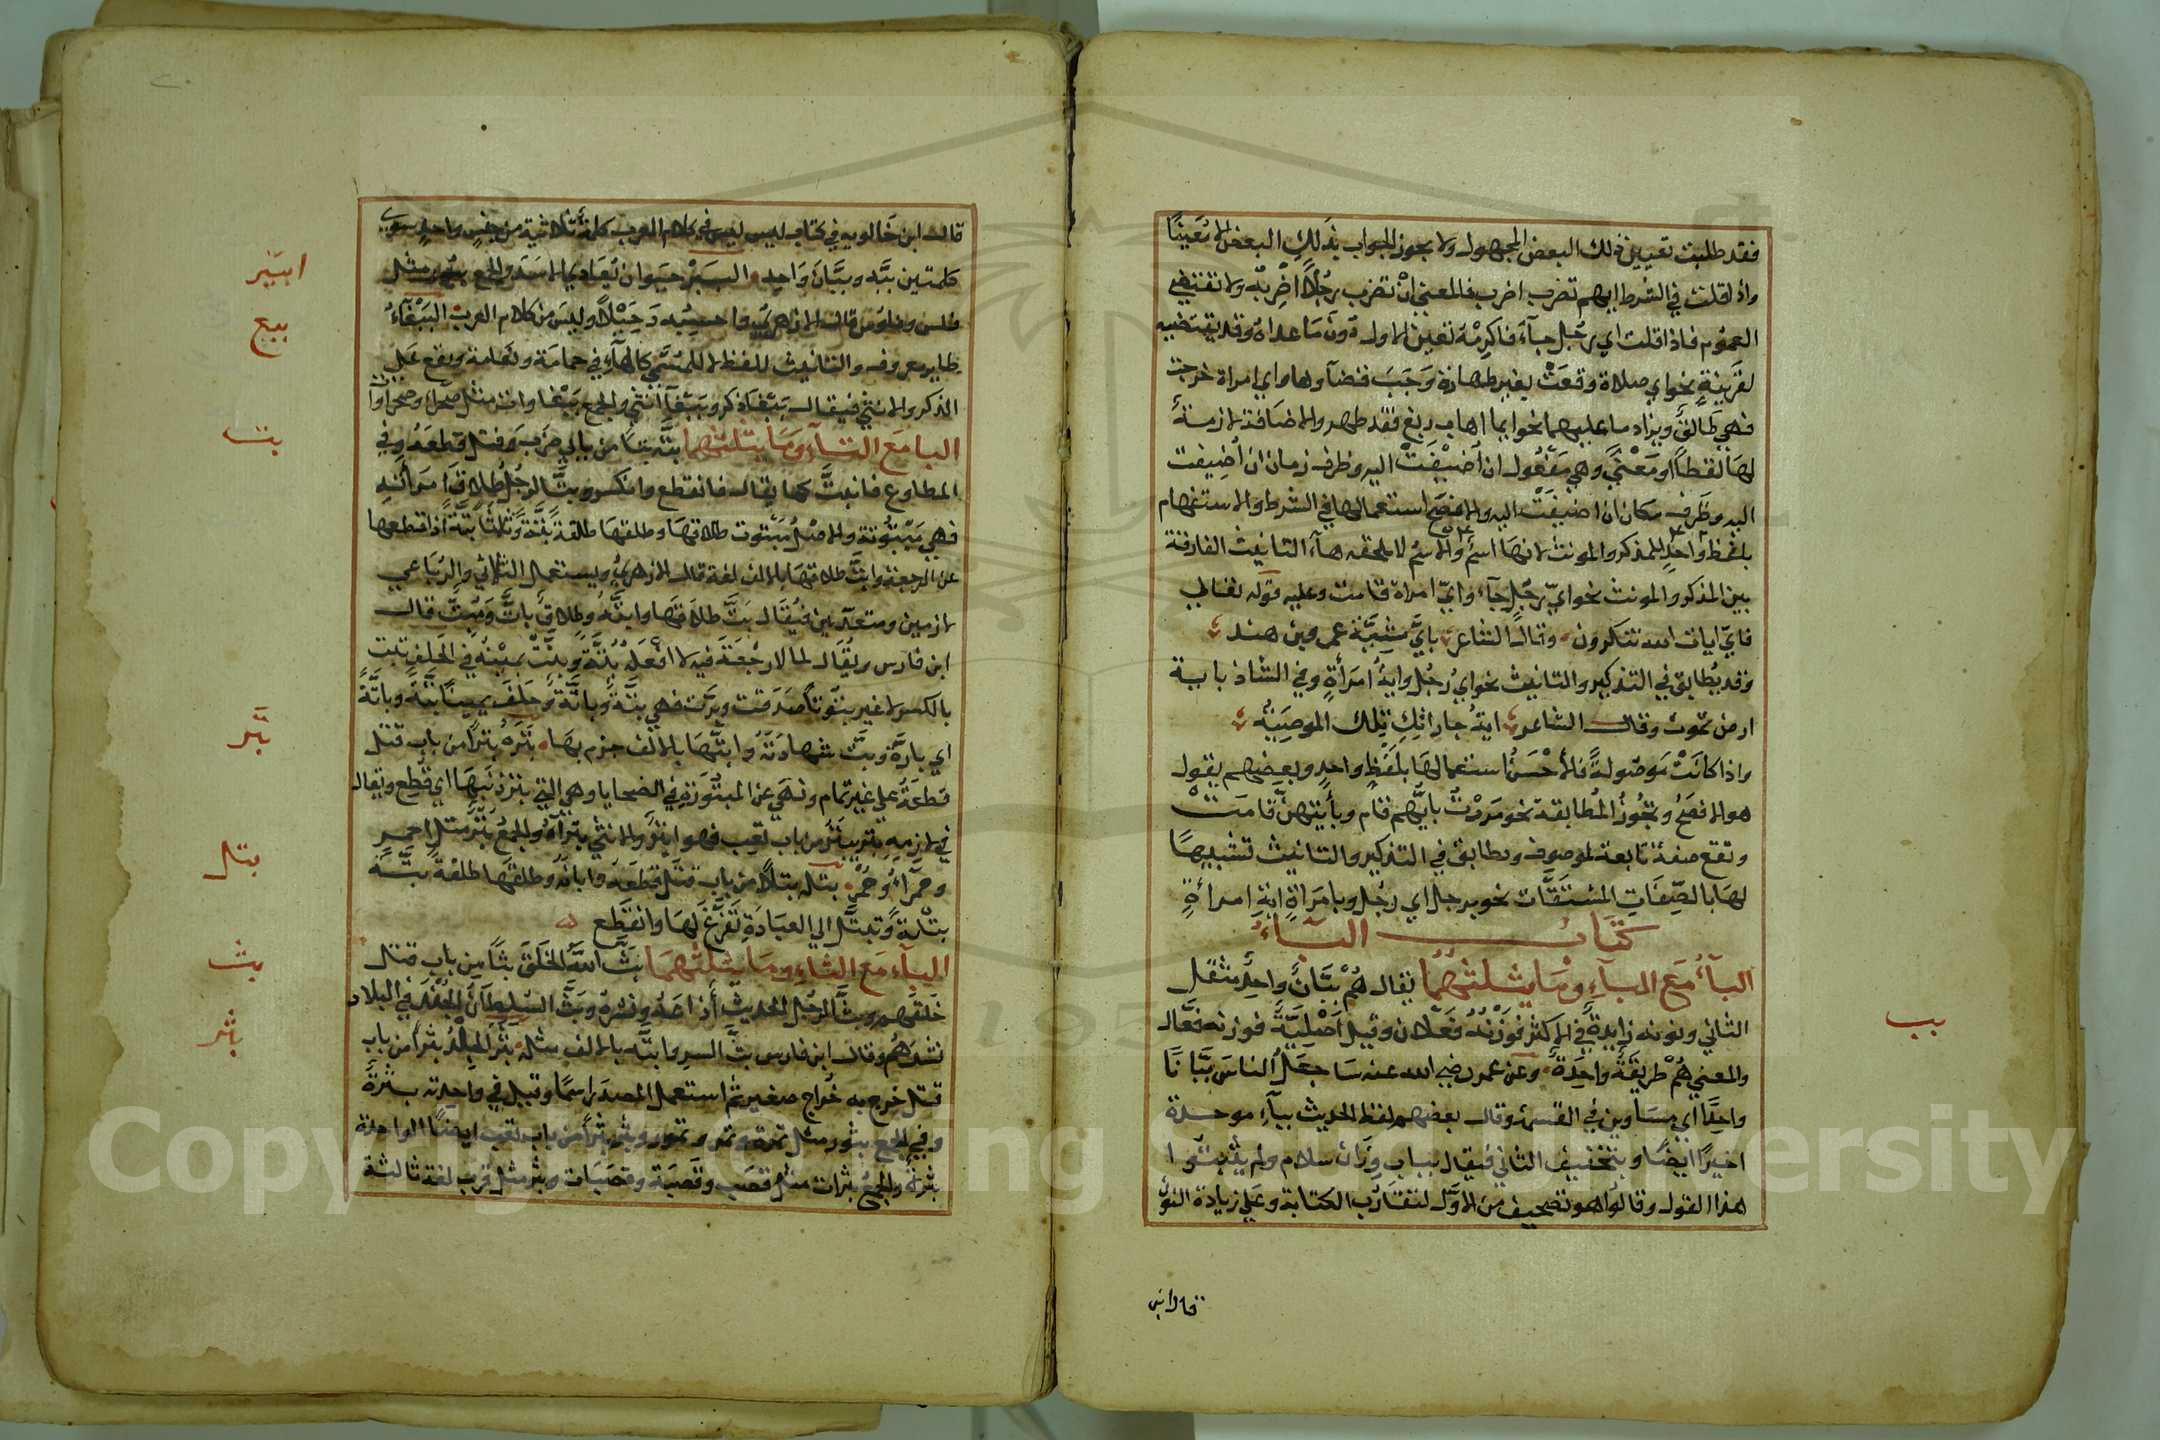 فقد طلبت تعيين ذلك البعض المجهول ولا يجوز الجواب بذلك البعض الا تعيينًا
واذا قلت في الشرط ايهم تضرب اضرب فالمعنى ان تضرب رجلًا اضربه ولا تقتضي
العموم فاذا قلت اي رجل جآء فاكرمه تعين الاول دون ما عداه وقد يقتضيه
لقرينة نحو اي صلاة وقعت بغير طهارة وجب قضآوها واي امراة خرجت
فهي طالق ويزاد ما عليهما نحو ايما اهاب دبغ فقد طهر والاضافة لازمة
لها لفظًا او معنًى وهي مفعول ان اضيفت اليه وظرف زمان ان اضيفت
اليه وظرف مكان ان اضيفت اليه والافصح استعمالها في الشرط والاستفهام
بلفظ واحد للمذكر والمونث لانها اسم والاسم لا يلحقه هآء التانيث الفارقة
بين المذكر والمونث نحو اي رجل جآء واي امراة قامت وعليه قوله تعالى
فاي ايات الله تنكرون وقال الشاعر باي مشيّة عمرو بن هند
وقد يطابق في التذكير والتانيث نحو اي رجل واية امرأة وفي الشاذ باية
ارض تموت وقال الشاعر اية جاراتك تلك الموصيه
واذا كانت موصولة فالأحسن استعمالها بلفظ واحد وبعضهم يقول
هو الافصح وتجوز المطابقة نحو مررت بايهم قام وبأيتهن قامت
وتقع صفة تابعة لموصوف وتطابق في التذكير والتانيث تشبيهًا
لها بالصفات المشتقات نحو برجل اي رجل وبامراة اية امراة
كتاب البآء
البآء مع البآء وما يثلثهما يقال هم ببّان واحد مثقل
الثاني ونونه زايدة في الاكثر فوزنه فعلان وقيل اصلية فوزنه فعّال
والمعنى هم طريقة واحدة وعن عمر رضي الله عنه سا جعل الناس ببّانًا
واحدًا اي متساوين في القسمة وقال بعضهم لفظ الحديث بيآء موحدة
اخيرًا ايضًا وبتخفيف الثاني فيقال بباب وزان سلام ولم يثبتوا
هذا القول وقالوا هو تصحيف من الاول لتقارب الكتابة وعلى زيادة النون
قال ابن
بب
قال ابن خالويه في كتاب ليس ليس في كلام العرب كلمة ثلاثية من جنس واحد سوى
كلمتين ببّه وببّان واحد البَبْر حيوان يعادي الاسد والجمع ببور مثل
فلس وفلوس قال الازهري واحسبه دخيلًا وليس من كلام العرب الببغآء
طاير معروف والتانيث للفظ لا للمسمى كالهآء في حمامة ونعامة ويقع على
الذكر والانثى فيقال ببغآ ذكر وببغآ انثى والجمع ببغاوات مثل صحرآء وصحراوات
البا مع التآء وما يثلثهما بتّه بتًا من بابي ضرب وقتل قطعه وفي
المطاوع فانبتّ كما يقال فانقطع وانكسر وبتّ الرجل طلاق امرأته
فهي مبتوتة والاصل مبتوت طلاقها وطلقها طلقة بتّة وثلاثًا بتّة اذا قطعها
عن الرجعة وابتّ طلاقها بالالف لغة قال الازهري ويستعمل الثلاثي والرباعي
لازمين ومتعديين فيقال بتّ طلاقها وابتّه وطلاق باتّ ومبتّ قال
ابن فارس ويقال لما لا رجعة فيه لا افعله بتّة وبتّت يمينه في الحلف تبت
بالكسر لا غير بتوتًا صدقت وبرّت فهي بتّة وباتّة وحلف يمينًا بتّة وباتّة
اي بارّة وبتّ شهادته وابتّها بالالف جزم بها بتره بترًا من باب قتل
قطعه على غير تمام ونهي عن المبتورة في الضحايا وهي التي بتر ذنبها اي قطع ويقال
في لازمه بتر يبتر من باب تعب فهو ابتر والانثى بترآء والجمع بتر مثل احمر
وحمرآء وحمر بتله بتلًا من باب قتل قطعه وابانه وطلقها طلقة بتّة
بتلة وتبتّل الى العبادة تفرغ لها وانقطع
البآء مع الثاء وما يثلثهما بثّ الله الخلق بثًا من باب قتل
خلقهم وبثّ الرجل الحديث أذاعه ونشره وبثّ السلطان الجند في البلاد
نشرهم وقال ابن فارس بثّ السر وابثّه بالالف مثله بثر الجلد بثرًا من باب
قتل خرج به خُراج صغير ثم استعمل المصدر اسمًا وقيل في واحدته بثرة
وفي الجمع بثور مثل تمرة وتمر وتمور وبثر بثرًا من باب تعب ايضًا الواحدة
بثرة والجمع بثرات مثل قصب وقصبة وقصبات وبثر مثل قرب لغة ثالثة
ببغ
بت
بتر
بتل
بث
بثر
Copyright © King Saud University
1957